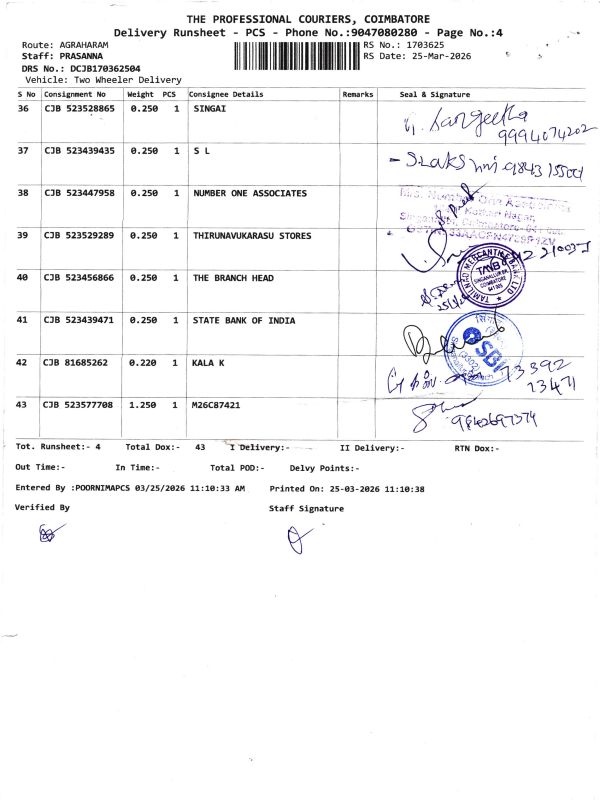 THE PROFESSIONAL COURIERS, COIMBATORE
Delivery Runsheet - PCS - Phone No.:9047080280 - Page No.:4
Route: AGRAHARAM RS No.: 1703625
Staff: PRASANNA RS Date: 25-Mar-2026
DRS No.: DCJB170362504
Vehicle: Two Wheeler Delivery
S No Consignment No Weight PCS Consignee Details Remarks Seal & Signature
36 CJB 523528865 0.250 1 SINGAI
9994074202
37 CJB 523439435 0.250 1 S L
38 CJB 523447958 0.250 1 NUMBER ONE ASSOCIATES
39 CJB 523529289 0.250 1 THIRUNAVUKARASU STORES
40 CJB 523456866 0.250 1 THE BRANCH HEAD
TAMILNAD MERCANTILE BANK LTD
TMB
41 CJB 523439471 0.250 1 STATE BANK OF INDIA
SBI
42 CJB 81685262 0.220 1 KALA K
73392
23471
43 CJB 523577708 1.250 1 M26C87421
Tot. Runsheet:- 4 Total Dox:- 43 I Delivery:- II Delivery:- RTN Dox:-
Out Time:- In Time:- Total POD:- Delvy Points:-
Entered By :POORNIMAPCS 03/25/2026 11:10:33 AM Printed On: 25-03-2026 11:10:38
Verified By Staff Signature